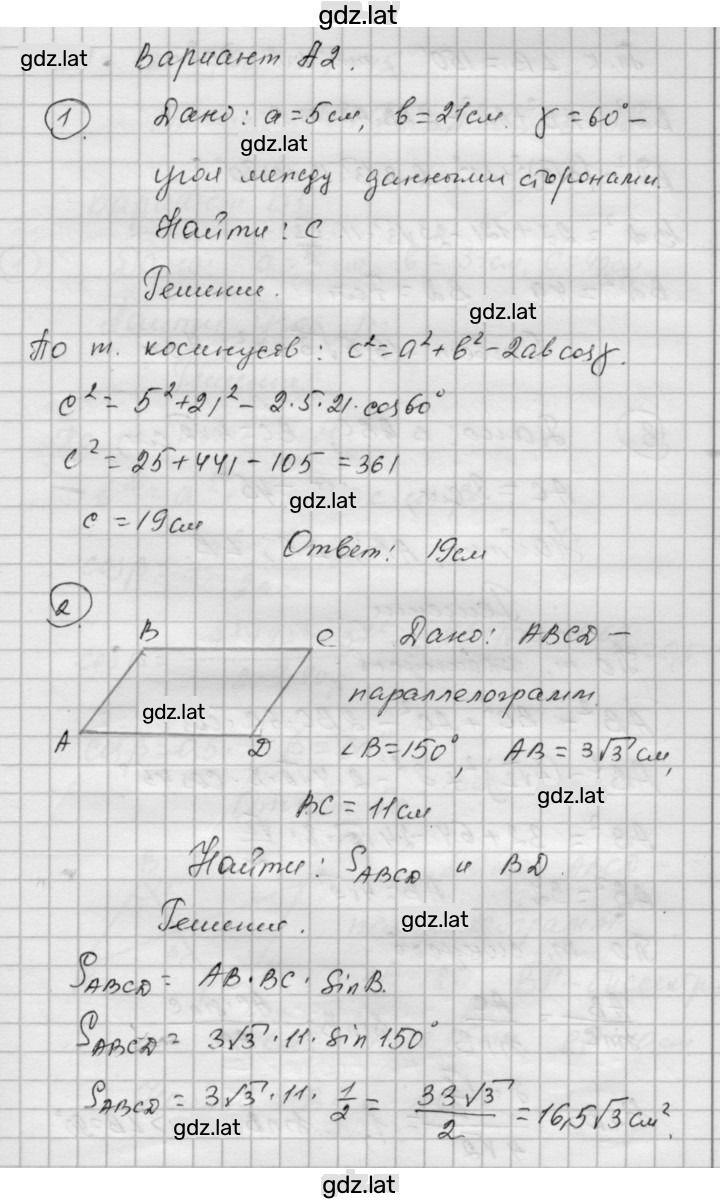 gdz.lat
gdz.lat
Вариант А2.
1. Дано: a = 5см, b = 21см. γ = 60° –
gdz.lat
угол между данными сторонами.
Найти: c
Решение.
gdz.lat
По т. косинусов: c² = a² + b² - 2ab cosγ.
c² = 5² + 21² - 2·5·21·cos60°
c² = 25 + 441 - 105 = 361
gdz.lat
c = 19см
Ответ: 19см
2.
B C
Дано: ABCD –
gdz.lat
параллелограмм
A D
∠B = 150°, AB = 3√3 см,
gdz.lat
BC = 11см
Найти: S_ABCD и BD.
Решение.
gdz.lat
S_ABCD = AB·BC·sinB.
S_ABCD = 3√3·11·sin150°
S_ABCD = 3√3·11·1/2 = 33√3/2 = 16,5√3 см².
gdz.lat
gdz.lat